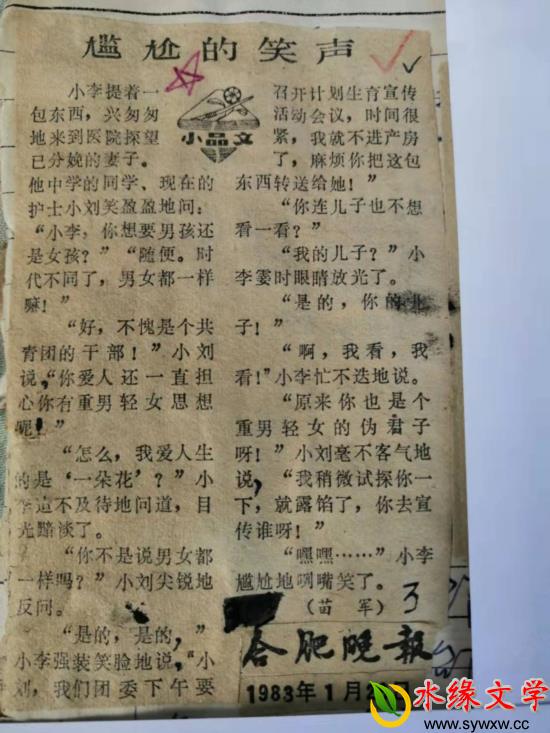 尴尬的笑声
小品文
小李提着一
包东西，兴匆匆
地来到医院探望
已分娩的妻子。
他中学的同学、现在的
护士小刘笑盈盈地问：
“小李，你想要男孩还
是女孩？”“随便。时
代不同了，男女都一样
嘛！”
“好，不愧是个共
青团的干部！”小刘
说，“你爱人还一直担
心你有重男轻女思想
呢！”
“怎么，我爱人生
的是‘一朵花’？”小
李迫不及待地问道，目
光黯淡了。
“你不是说男女都
一样吗？”小刘尖锐地
反问。
“是的，是的，”
小李强装笑脸地说，“小
刘，我们团委下午要
召开计划生育宣传
活动会议，时间很
紧，我就不进产房
了，麻烦你把这包
东西转送给她！”
“你连儿子也不想
看一看？”
“我的儿子？”小
李霎时眼睛放光了。
“是的，你的
子！”
“啊，我看，我
看！”小李忙不迭地说。
“原来你也是个
重男轻女的伪君子
呀！”小刘毫不客气地
说，“我稍微试探你一
下，就露馅了，你去宣
传谁呀！”
“嘿嘿……”小李
尴尬地咧嘴笑了。
（苗军）
合肥晚报
1983年1月2
水缘文学
www.sywxw.com